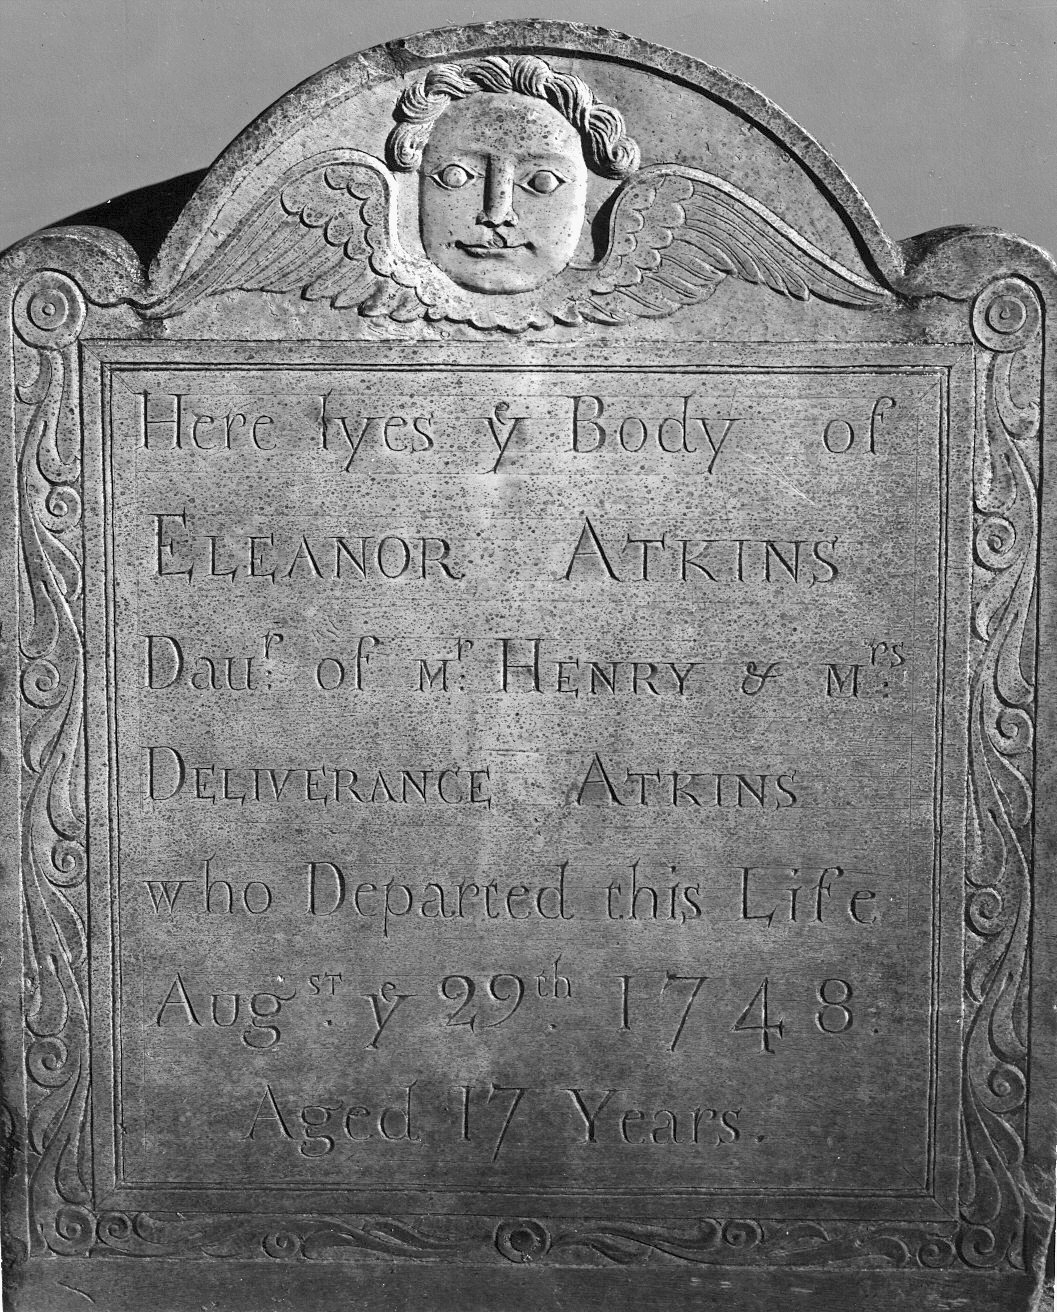 Here lyes yͤ Body of
ELEANOR ATKINS
Dauʳ: of Mʳ: HENRY & Mʳˢ:
DELIVERANCE ATKINS
who Departed this Life
Augˢᵀ. yͤ 29ᵗʰ. 1748.
Aged 17 Years.